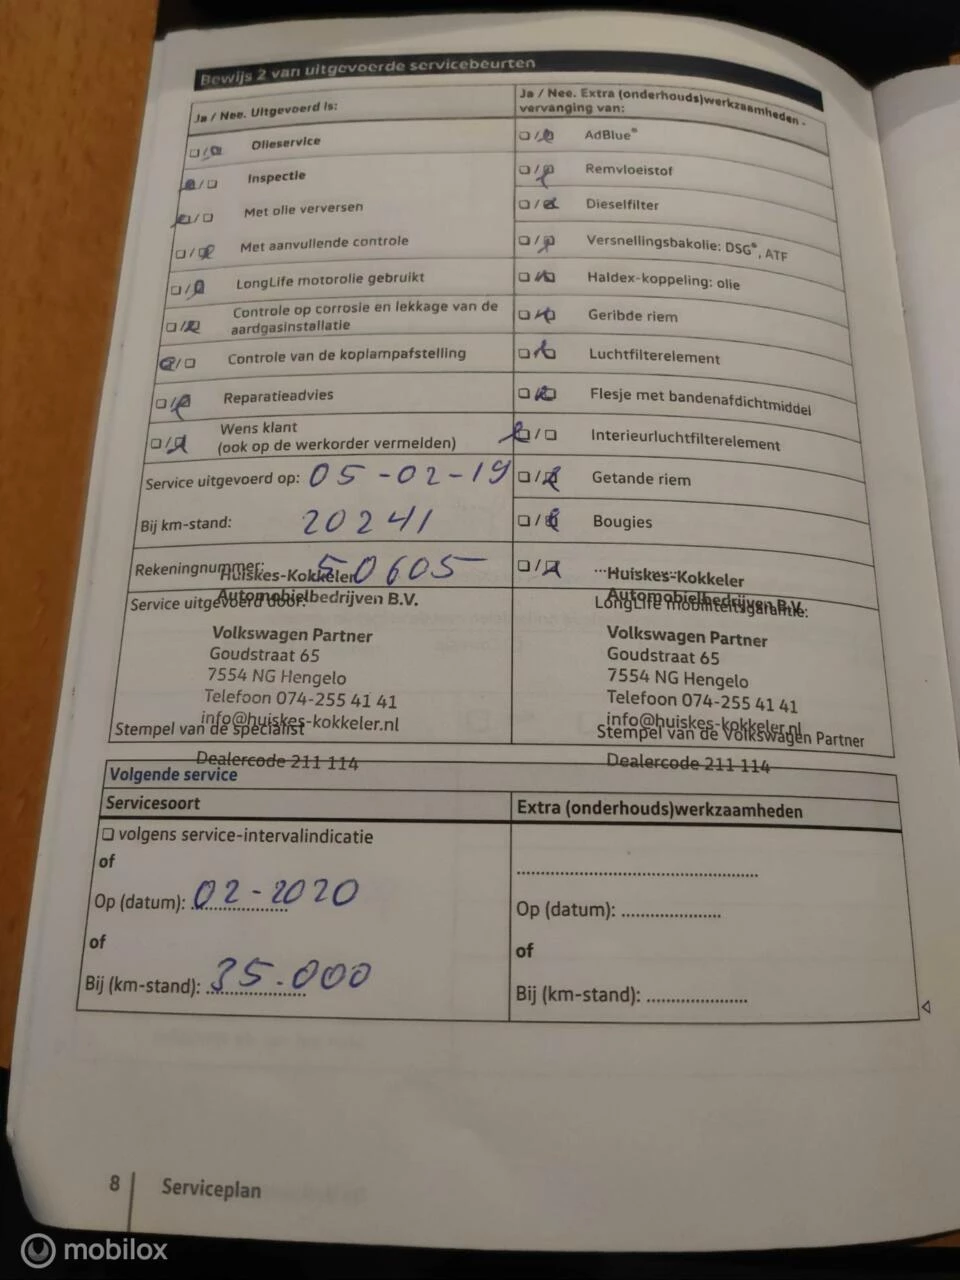 Bewijs 2 van uitgevoerde servicebeurten
Ja / Nee. Uitgevoerd is:
Olieservice
Inspectie
Met olie verversen
Met aanvullende controle
LongLife motorolie gebruikt
Controle op corrosie en lekkage van de
aardgasinstallatie
Controle van de koplampafstelling
Reparatieadvies
Wens klant
(ook op de werkorder vermelden)
Service uitgevoerd op: 05-02-19
Bij km-stand: 20241
Rekeningnummer: 50605
Ja / Nee. Extra (onderhouds)werkzaamheden -
vervanging van:
AdBlue®
Remvloeistof
Dieselfilter
Versnellingsbakolie: DSG®, ATF
Haldex-koppeling: olie
Geribde riem
Luchtfilterelement
Flesje met bandenafdichtmiddel
Interieurluchtfilterelement
Getande riem
Bougies
Service uitgevoerd door:
Huiskes-Kokkeler
Automobielbedrijven B.V.
Volkswagen Partner
Goudstraat 65
7554 NG Hengelo
Telefoon 074-255 41 41
info@huiskes-kokkeler.nl
Stempel van de specialist
Dealercode 211 114
LongLife mobiliteitsgarantie:
Huiskes-Kokkeler
Automobielbedrijven B.V.
Volkswagen Partner
Goudstraat 65
7554 NG Hengelo
Telefoon 074-255 41 41
info@huiskes-kokkeler.nl
Stempel van de Volkswagen Partner
Dealercode 211 114
Volgende service
Servicesoort
volgens service-intervalindicatie
of
Op (datum): 02-2020
of
Bij (km-stand): 35.000
Extra (onderhouds)werkzaamheden
Op (datum):
of
Bij (km-stand):
8
Serviceplan
mobilox